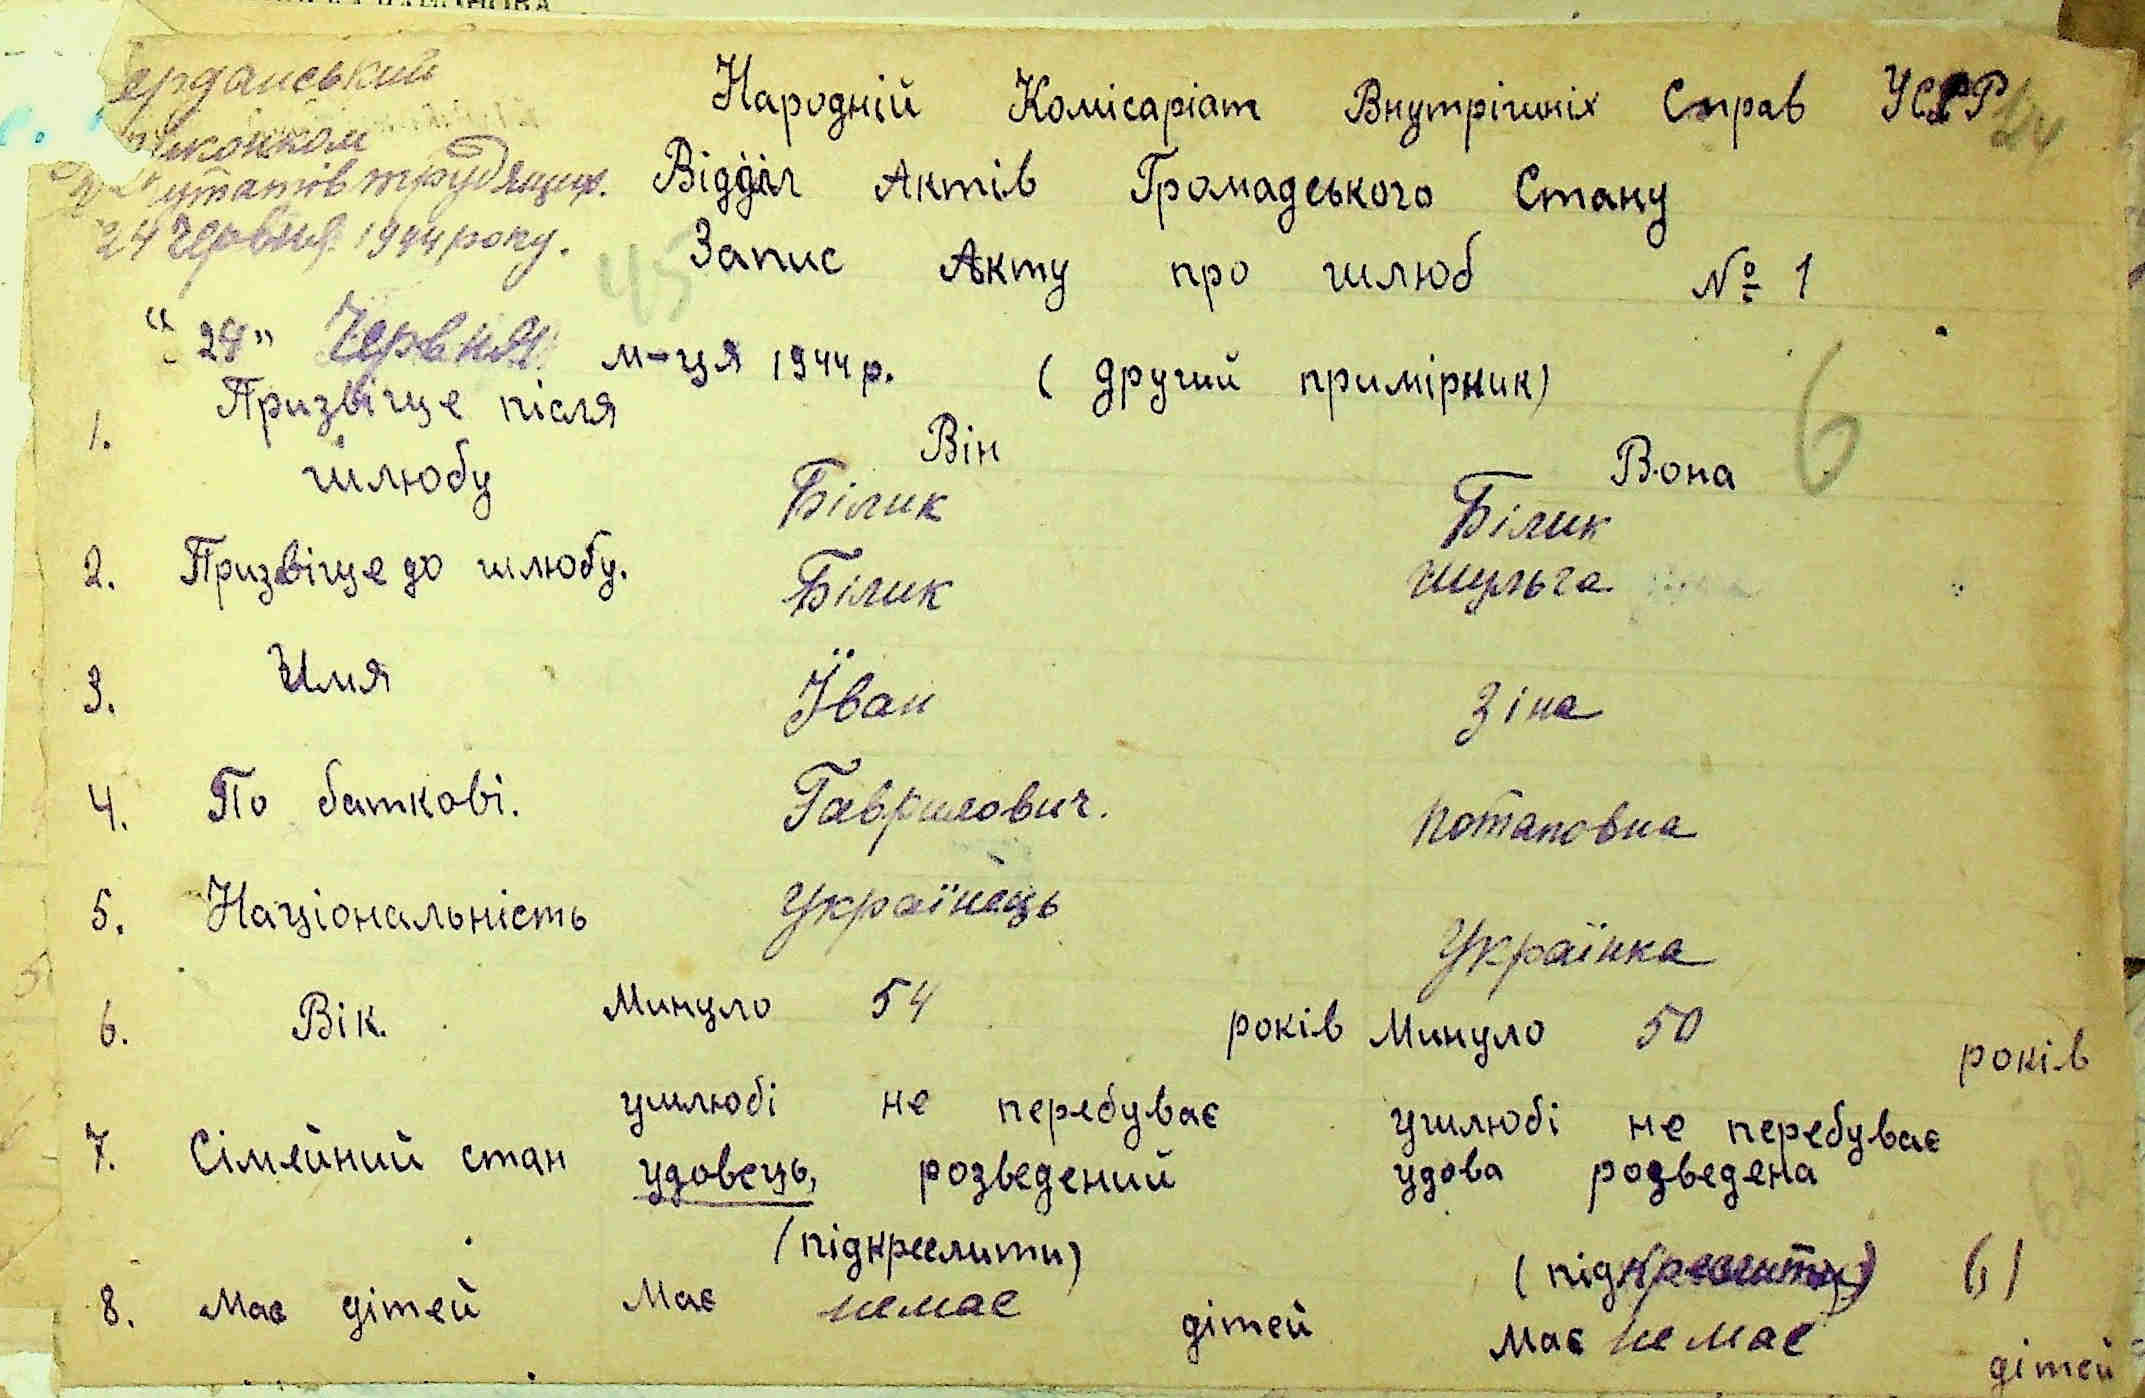 ерданський
иконком
утатів трудящих.
24 Червня 1944 року.
Народній Комісаріат Внутрішніх Справ УСРР
Відділ Актів Громадського Стану
Запис Акту про шлюб № 1
45
"24" Червня м-ця 1944 р. (другий примірник)
6
1. Призвіще після шлюбу
Він Вона
Білик Білик
2. Призвіще до шлюбу. Білик Шульга
3. Имя Їван Зіна
4. По баткові. Гаврилович. Потаповна
5. Національність Українець Українка
6. Вік. Минуло 54 років Минуло 50 років
ушлюбі не перебуває ушлюбі не перебуває
7. Сімейний стан удовець, розведений удова розведена
(підкреслити) (підкреслити) 61
8. Має дітей Має немає дітей Має немає дітей